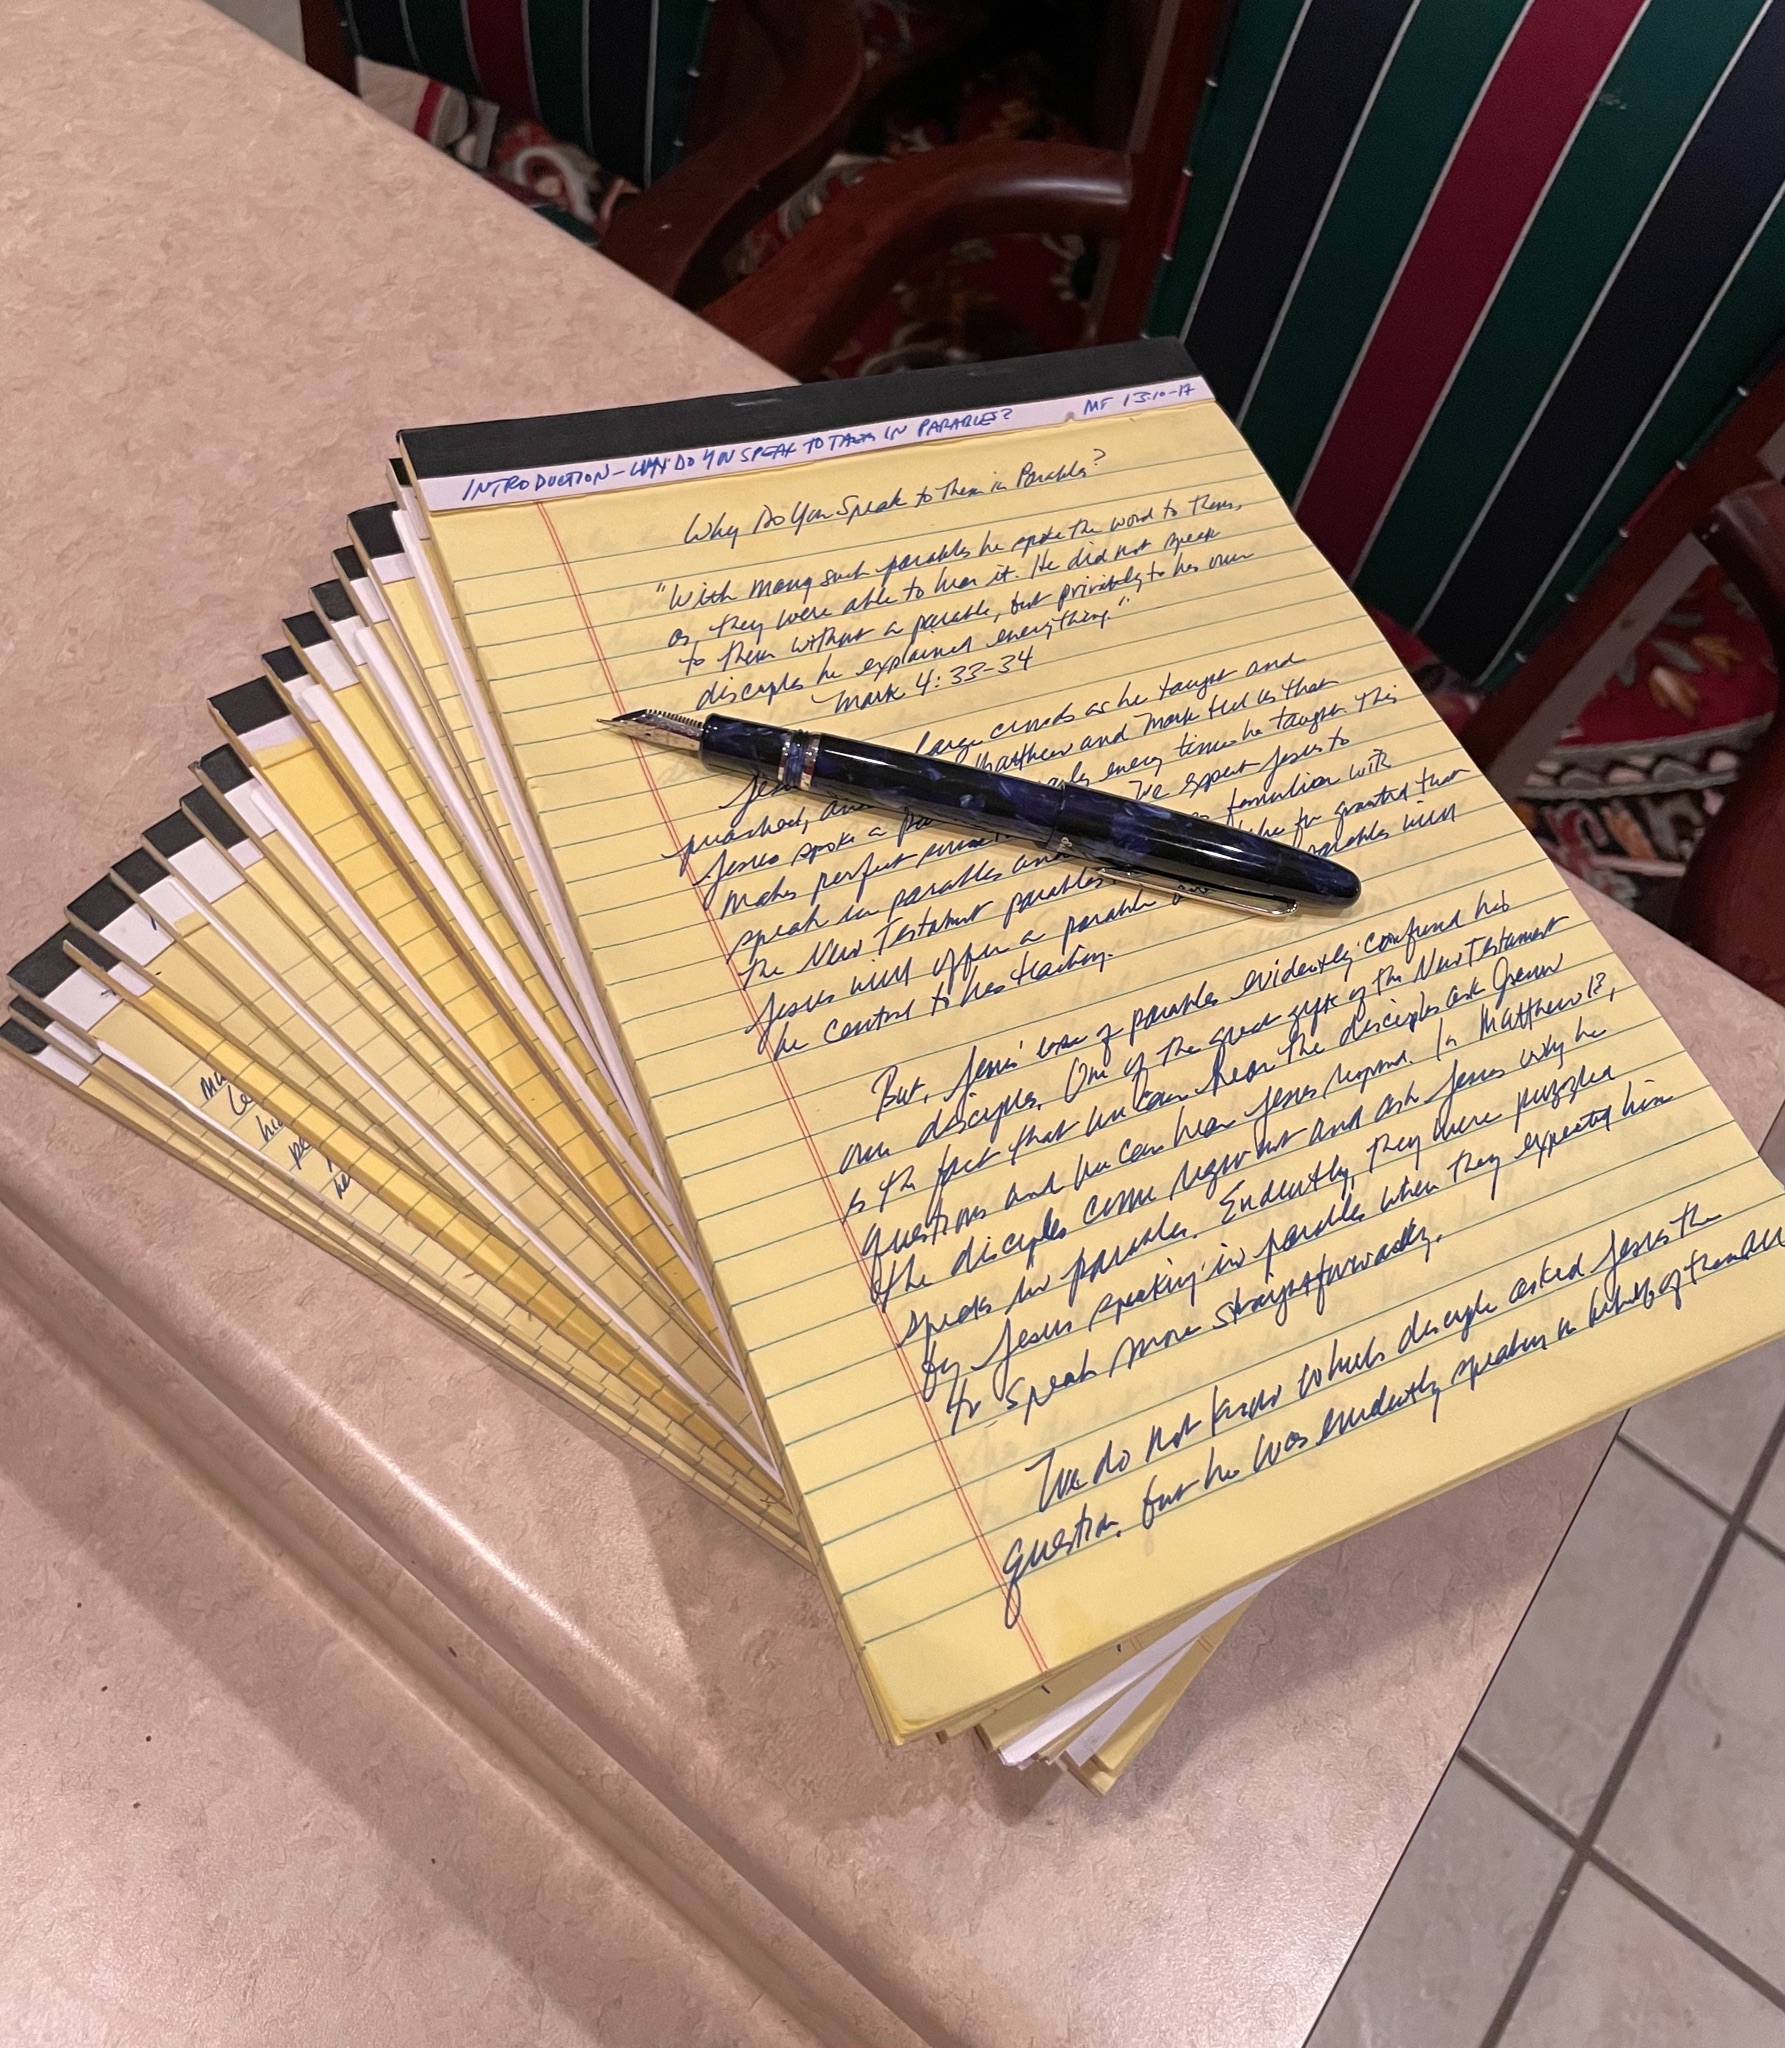 INTRODUCTION - WHY DO YOU SPEAK TO THEM IN PARABLES? MT 13:10-17
Why Do You Speak to Them in Parables?
"With many such parables he spoke the word to them,
as they were able to hear it. He did not speak
to them without a parable, but privately to his own
disciples he explained everything."
Mark 4:33-34
large crowds as he taught and
preached, and Matthew and Mark tell us that
Jesus spoke a every time he taught. This
makes perfect We expect Jesus to
speak in parables and familiar with
the New Testament parables. take for granted that
Jesus will offer a parable parables will
be central to his teaching.
But, Jesus' use of parables evidently confused his
own disciples. One of the great gifts of the New Testament
is the fact that we can hear the disciples ask Jesus
questions and we can hear Jesus respond. In Matthew 13,
the disciples come right out and ask Jesus why he
speaks in parables. Evidently, they were puzzled
by Jesus speaking in parables when they expected him
to speak more straightforwardly.
We do not know which disciple asked Jesus the
question, but he was evidently speaking on behalf of them all